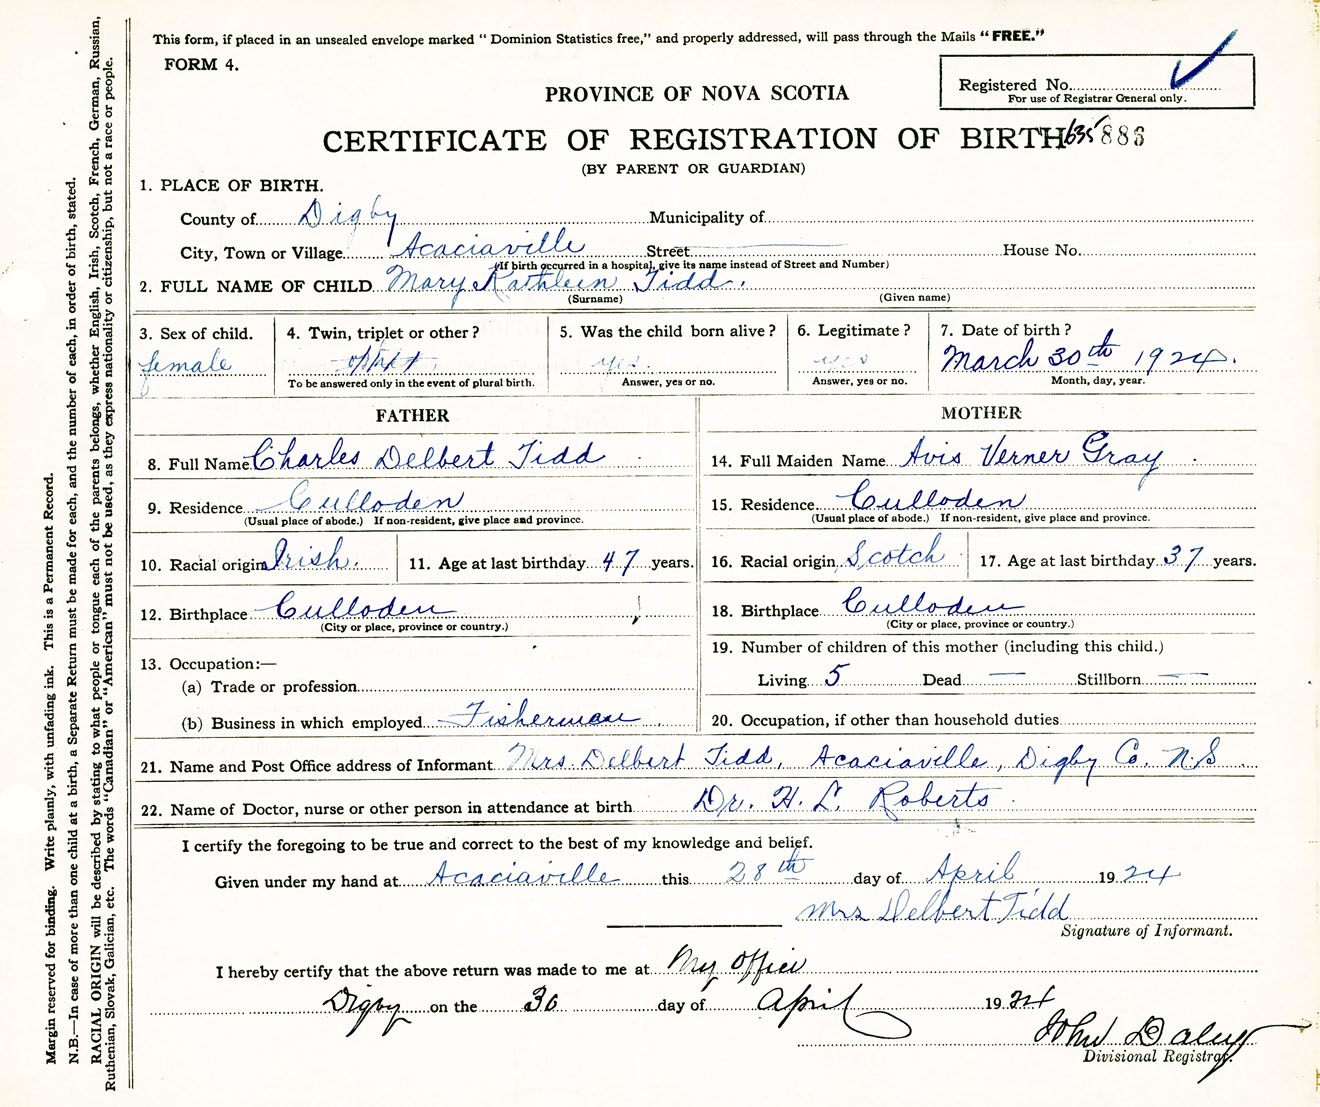 This form, if placed in an unsealed envelope marked " Dominion Statistics free," and properly addressed, will pass through the Mails "FREE."
FORM 4.
Registered No.
For use of Registrar General only.
PROVINCE OF NOVA SCOTIA
CERTIFICATE OF REGISTRATION OF BIRTH 635 886
(BY PARENT OR GUARDIAN)
1. PLACE OF BIRTH.
County of Digby Municipality of
City, Town or Village Acaciaville Street House No.
(If birth occurred in a hospital, give its name instead of Street and Number)
2. FULL NAME OF CHILD Mary Kathlein Tidd.
(Surname) (Given name)
3. Sex of child. 4. Twin, triplet or other? 5. Was the child born alive? 6. Legitimate? 7. Date of birth?
female yes. yes March 30th 1924.
To be answered only in the event of plural birth. Answer, yes or no. Answer, yes or no. Month, day, year.
FATHER MOTHER
8. Full Name Charles Delbert Tidd 14. Full Maiden Name Avis Verner Gray
9. Residence Culloden 15. Residence Culloden
(Usual place of abode.) If non-resident, give place and province. (Usual place of abode.) If non-resident, give place and province.
10. Racial origin Irish. 11. Age at last birthday 47 years. 16. Racial origin Scotch 17. Age at last birthday 37 years.
12. Birthplace Culloden 18. Birthplace Culloden
(City or place, province or country.) (City or place, province or country.)
13. Occupation:— 19. Number of children of this mother (including this child.)
(a) Trade or profession Living 5 Dead — Stillborn —
(b) Business in which employed Fisherman 20. Occupation, if other than household duties
21. Name and Post Office address of Informant Mrs Delbert Tidd, Acaciaville, Digby Co. N.S
22. Name of Doctor, nurse or other person in attendance at birth Dr. H. L. Roberts
I certify the foregoing to be true and correct to the best of my knowledge and belief.
Given under my hand at Acaciaville this 28th day of April 1924
Mrs Delbert Tidd
Signature of Informant.
I hereby certify that the above return was made to me at My Office
Digby on the 30 day of April 1924
John Daley
Divisional Registrar.
Margin reserved for binding. Write plainly, with unfading ink. This is a Permanent Record.
N.B.—In case of more than one child at a birth, a Separate Return must be made for each, and the number of each, in order of birth, stated.
RACIAL ORIGIN will be described by stating to what people or tongue each of the parents belongs, whether English, Irish, Scotch, French, German, Russian,
Ruthenian, Slovak, Galician, etc. The words "Canadian" or "American" must not be used, as they express nationality or citizenship, but not a race or people.